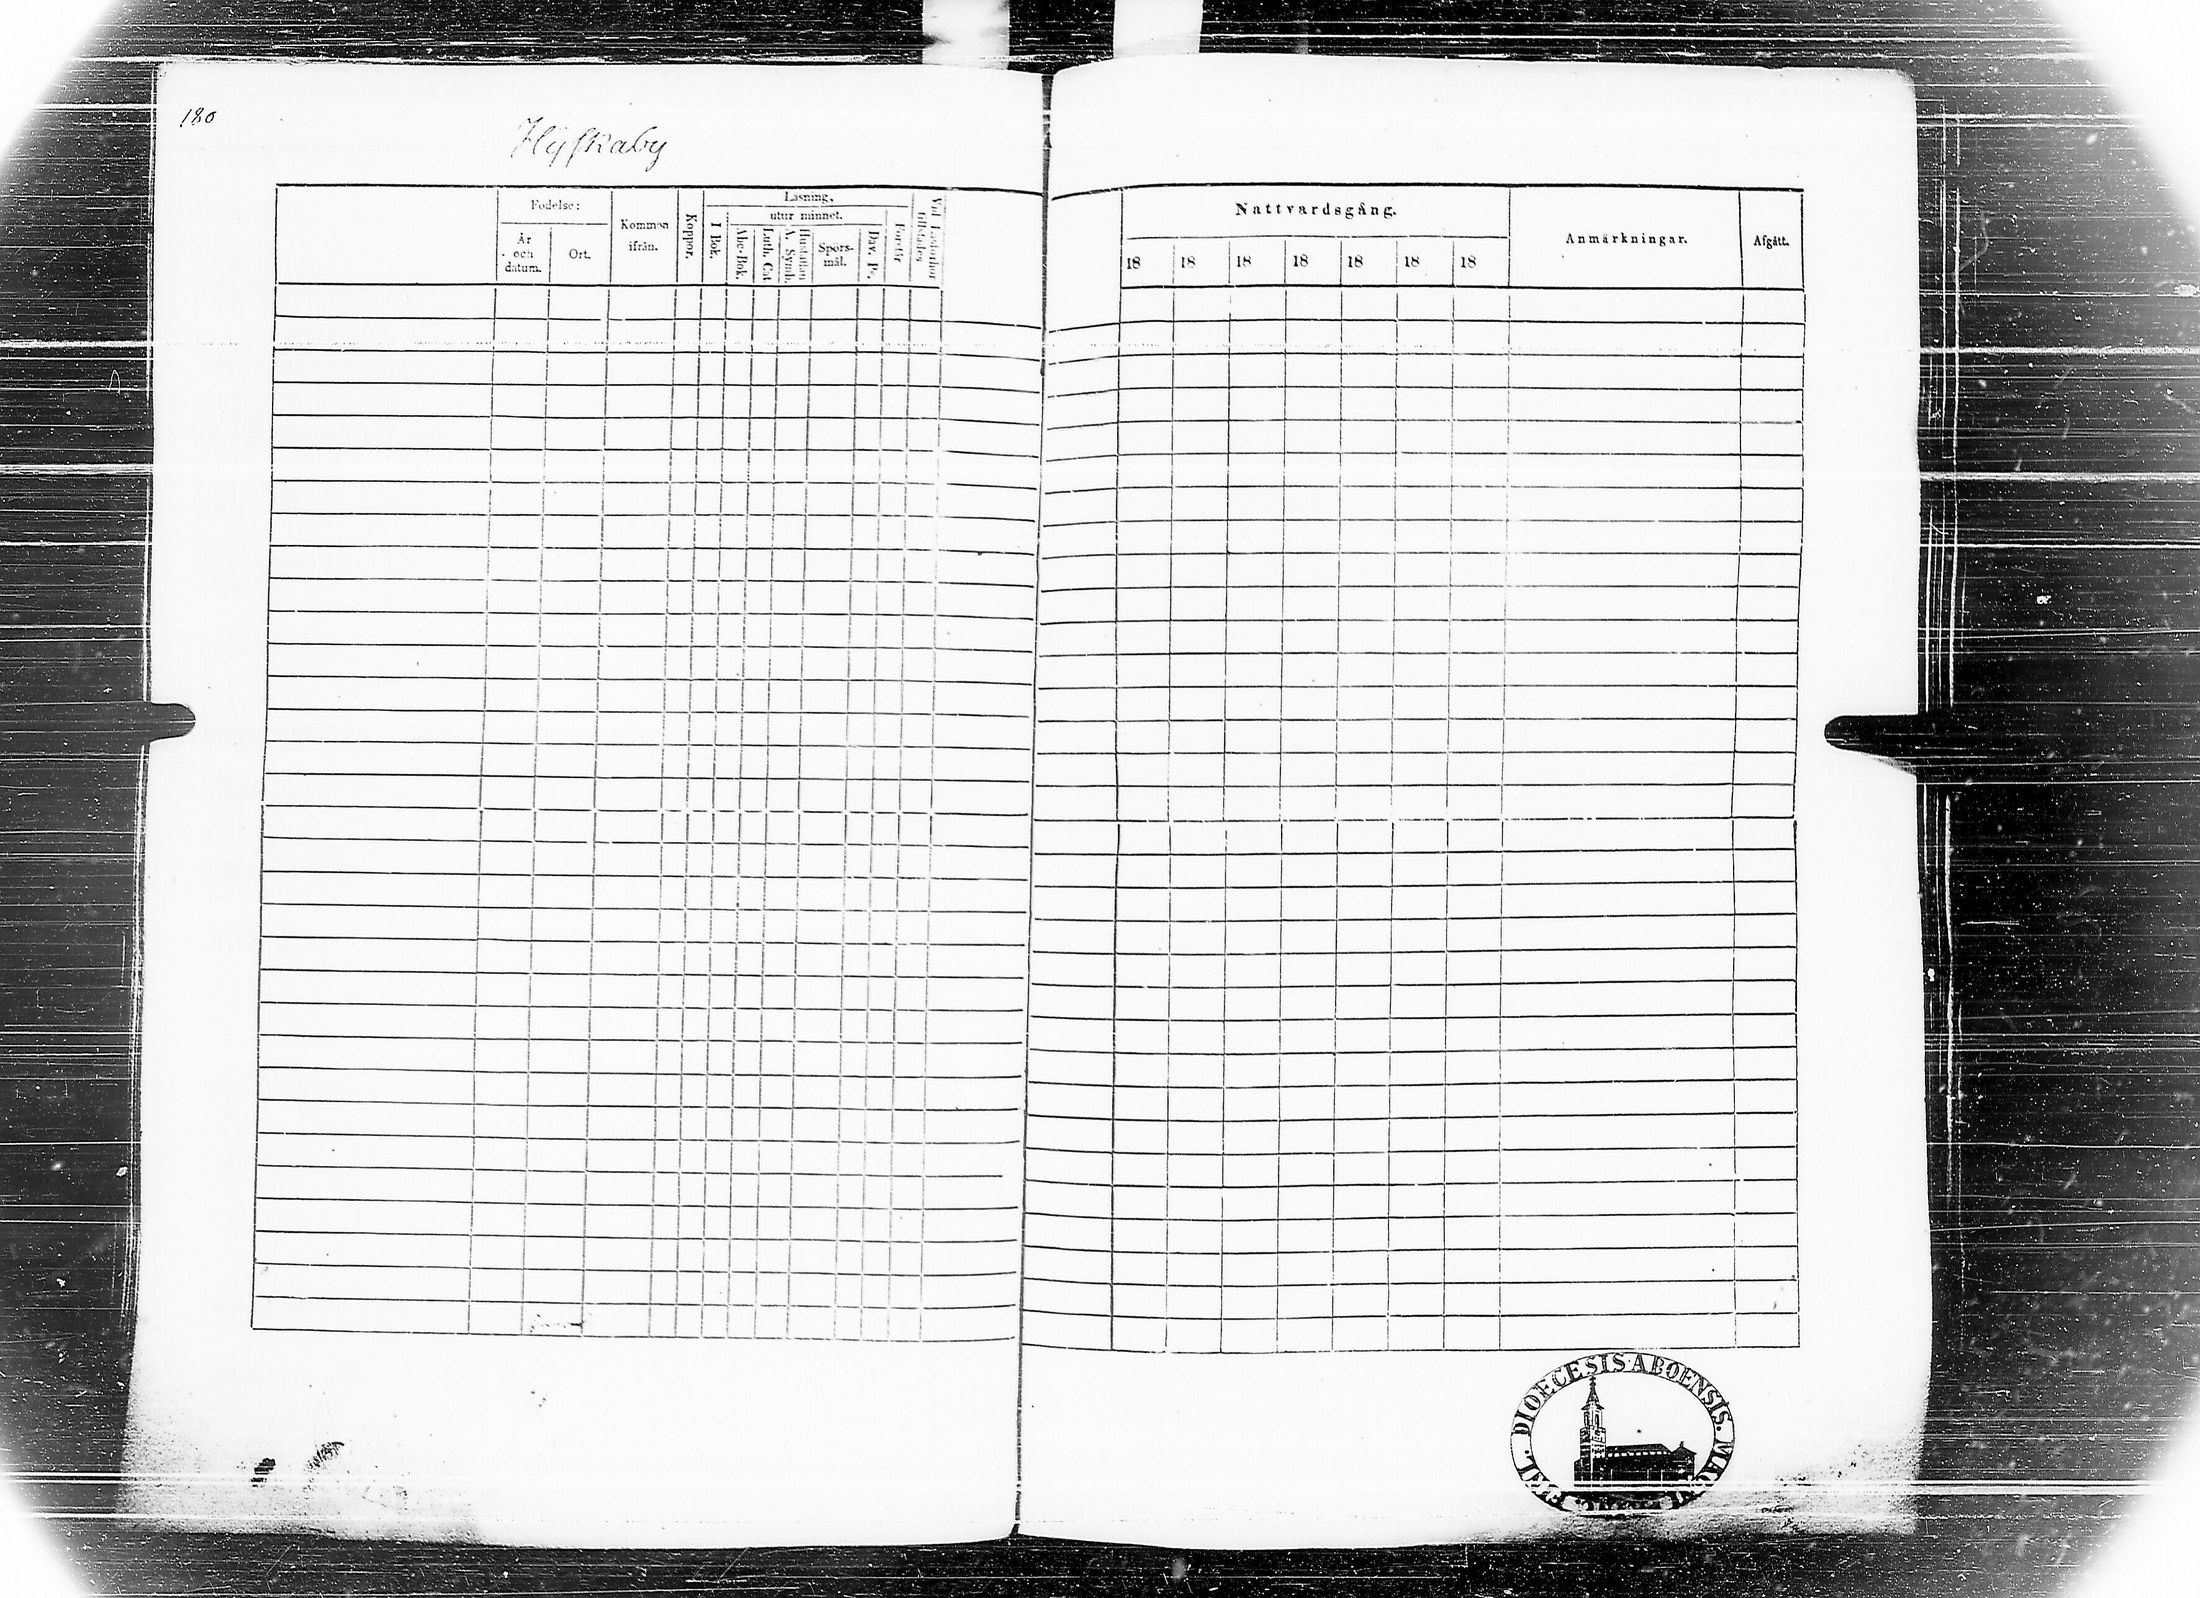 180
Hyfkaby
Födelse:
År
och
datum.
Ort.
Kommen
ifrån.
Koppor.
Läsning,
I Bok.
utur minnet.
Abc-Bok.
Luth. Cat.
Hustaflan
A. Symb.
Spörs-
mål.
Dav. Ps.
Förstår
Nattvardsgång.
18 18 18 18 18 18 18
Anmärkningar.
Afgått.
DIOECESIS ABOENSIS. MAGNI